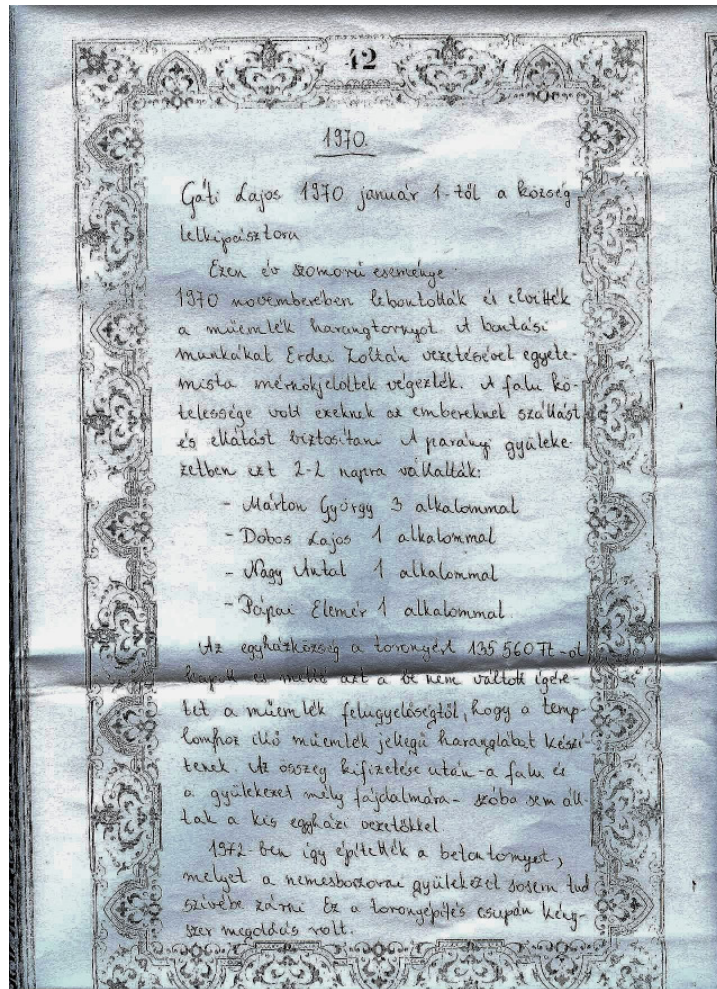 42
1970.
Gáti Lajos 1970 január 1-től a község
lelkipásztora
Ezen év szomorú eseménye:
1970 novemberében lebontották és elvitték
a műemlék harangtornyot. A bontási
munkákat Erdei Zoltán vezetésével egyete-
mista mérnökjelöltek végezték. A falu kö-
telessége volt ezeknek az embereknek szállást
és ellátást biztosítani. A parányi gyüleke-
zetben ezt 2-2 napra vállalták:
- Márton György 3 alkalommal
- Dobos Lajos 1 alkalommal
- Nagy Antal 1 alkalommal
- Pápai Elemér 1 alkalommal.
Az egyházközség a toronyért 135 560 Ft-ot
kapott és mellé azt a be nem váltott ígére-
tet a műemlék felügyelőségtől, hogy a temp-
lomhoz illő műemlék jellegű haranglábat készí-
tenek. Az összeg kifizetése után - a falu és
a gyülekezet mély fájdalmára - szóba sem áll-
tak a kis egyházi vezetőkkel.
1972-ben így építették a betontornyot,
melyet a nemesborzovai gyülekezet sosem tud
szívébe zárni. Ez a toronyépítés csupán kény-
szer megoldás volt.